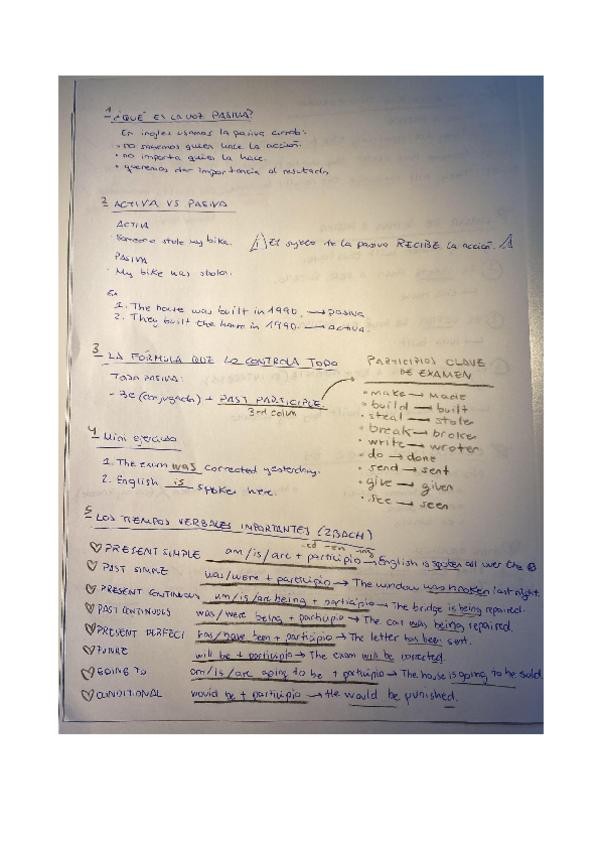 1 ¿QUÉ ES LA VOZ PASIVA?
En ingles usamos la pasiva cuando:
• no sabemos quien hace la acción.
• no importa quien la hace.
• queremos dar importancia al resultado
2 ACTIVA VS PASIVA
ACTIVA
· Someone stole my bike.
⚠ El sujeto de la pasiva RECIBE la acción. ⚠
PASIVA
· My bike was stolen.
Ex
1. The house was built in 1990. → pasiva
2. They built the house in 1990. → activa.
3 LA FÓRMULA QUE LO CONTROLA TODO
TODA PASIVA:
- Be (conjugado) + PAST PARTICIPLE.
3rd colum
PARTICIPIOS CLAVE
DE EXAMEN
• make → made
• build → built
• steal → stole
• break → broke
• write → wroten
• do → done
• send → sent
• give → given
• see → seen
4 Mini ejercicio
1. The exam was corrected yesterday.
2. English is spoken here.
5 LOS TIEMPOS VERBALES IMPORTANTES (2BACH)
-ed -en -ing
♡ PRESENT SIMPLE am/is/are + participio → English is spoken all over the
♡ PAST SIMPLE was/were + participio → The window was broken last night.
♡ PRESENT CONTINUOUS am/is/are being + participio → The bridge is being repaired.
♡ PAST CONTINUOUS was/were being + participio → The car was being repaired.
♡ PRESENT PERFECT has/have been + participio → The letter has been sent.
♡ FUTURE will be + participio → The exam will be corrected.
♡ GOING TO am/is/are going to be + participio → The house is going to be sold.
♡ CONDITIONAL would be + participio → He would be punished.